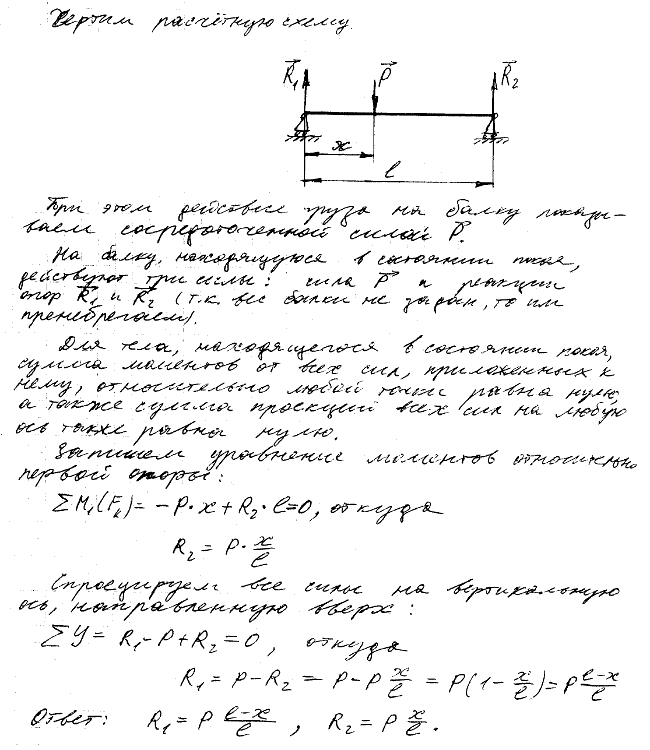 Чертим расчётную схему.
R₁ P R₂
x
l
При этом действие груза на балку показы-
ваем сосредоточенной силой P.
На балку, находящуюся в состоянии покоя,
действуют три силы: сила P и реакции
опор R₁ и R₂ (т.к. вес балки не задан, то им
пренебрегаем).
Для тела, находящегося в состоянии покоя,
сумма моментов от всех сил, приложенных к
нему, относительно любой точки равна нулю,
а также сумма проекций всех сил на любую
ось также равна нулю.
Запишем уравнение моментов относительно
первой опоры:
ΣM₁(Fₖ) = -P·x + R₂·l = 0, откуда
R₂ = P·x/l
Спроецируем все силы на вертикальную
ось, направленную вверх:
ΣY = R₁ - P + R₂ = 0, откуда
R₁ = P - R₂ = P - P x/l = P(1 - x/l) = P (l-x)/l
Ответ: R₁ = P (l-x)/l, R₂ = P x/l.